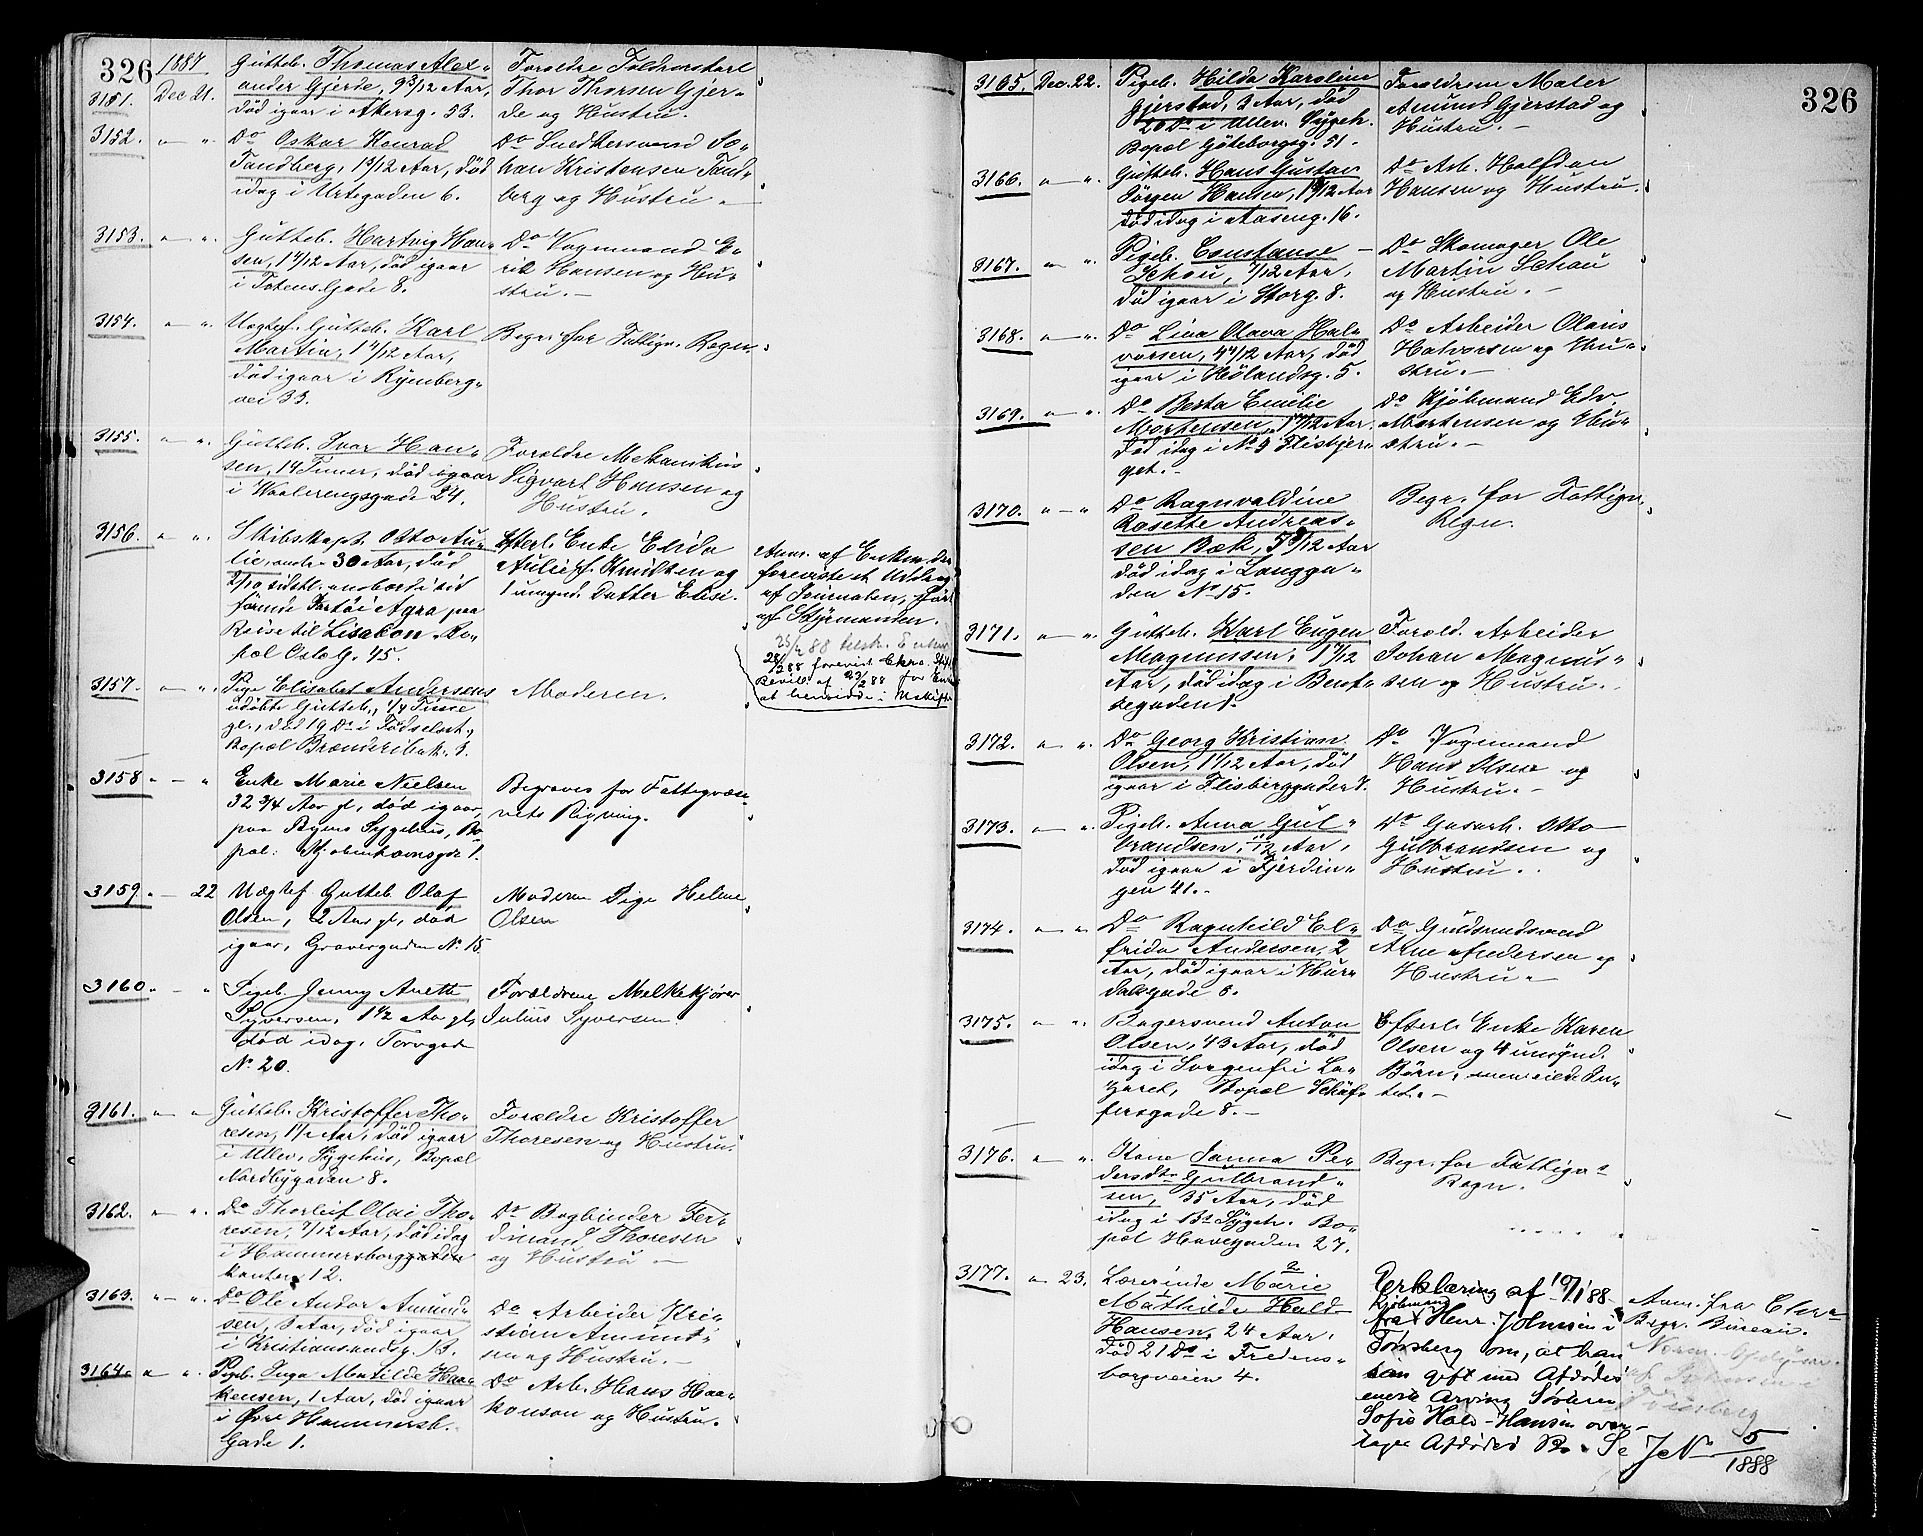 326
1887
3151. Dec 21.
Gutteb. Thomas Alex-
ander Gjerde, 9 3/12 Aar,
död igaar i Akersg. 53.
Forældre Toldoverbetj.
Thor Thorsen Gjer-
de og Hustru.
3152. " — ".
Do Oskar Konrad
Tandberg, 1 3/12 Aar, död
idag i Urtegaden 6.
Do Snedkersvend Jo-
han Kristensen Tand-
berg og Hustru. —
3153. " — ".
Gutteb. Hartvig Han-
sen, 1 4/12 Aar, död igaar
i Totens Gade 8.
Do Vognmand E-
rik Hansen og Hu-
stru. —
3154. " — ".
Uægtef. Gutteb. Karl
Martin, 1 4/12 Aar,
död igaar i Rÿenberg-
vei 33.
Begr. for Fattigv. Regn.
3155. " — ".
Gutteb. Ivar Han-
sen, 14 Timer, död igaar
i Waalerengsgade 24.
Forældre Mekanikus
Sigvart Hansen og
Hustru.
3156. " — ".
Skibskapt. Otto Au-
lie, 30 Aar, död
2/10 sidstl. ombord i sit
förende Fartöi Agra paa
Reise til Lissabon. Bo-
pæl Oslo G. 45.
Efterl. Enke Elida
Aulie f. Knudsen og
1 umynd. Datter Elise.
Anm. af Enken, der
foreviste et Uddrag
af Journalen, fört
af Styrmanden.
28/2 88 forevist
Bevill. af 23/2 88 for Enken
at hensidde i Uskifte
3157. " — ".
Pige Elisabet Andersens
udöbte Gutteb., 1/4 Time
gl., död 19 Ds i Födselsst.,
Bopæl Brænderibak. 3.
Moderen.
3158 " — "
Enke Marie Nielsen
32 3/4 Aar gl., död igaar,
paa Byens Sygehus, Bo-
pæl: Kjøbenhavnsgde 1.
Begraves for Fattigvæse-
nets Regning.
3159. — 22
Uægtef Gutteb Olaf
Olsen, 2 Aar gl, död
igaar, Gravergaden No 15.
Moderen Pige Helene
Olsen
3160. " — "
Pigeb. Jenny Anette
Syversen, 1 1/2 Aar gl,
död idag, Torvget
No 20.
Forældrene Melkekjører
Julius Syversen.
3161. " — "
Gutteb. Kristoffer Tho-
resen, 1 1/2 Aar, död igaar
i Ullev. Sygehus, Bopæl
Nordbygaden 8.
Forældre Kristoffer
Thoresen og Hustru.
3162. " — ".
Do Thorleif Olai Tho-
resen, 7/12 Aar, död idag
i Hammersborggaden
kanten 12.
Do Bogbinder Fer-
dinand Thoresen
og Hustru —
3163. " — ".
Do Ole Andor Amund-
sen, 3 Aar, död igaar
i Kristiansandsg. 13.
Do Arbeider Kri-
stian Amund-
sen og Hustru. —
3164. " — ".
Pigeb. Inga Matilde Haa-
kensen, 1 Aar, död igaar
i Övre Hammersb.
Gade 1.
Do Arb. Hans Haa-
konson og Hustru.
326
3165. Dec. 22.
Pigeb. Hilda Karoline
Gjerstad, 3 Aar, död
20 Ds i Ullev. Sygeh.
Bopæl Göteborgsg. 51.
Forældrene Maler
Amund Gjerstad og
Hustru. —
3166. " — ".
Gutteb. Hans Gustav
Jörgen Hansen, Aar
död idag i Aaseng. 16.
Do Arb. Halfdan
Hansen og Hustru.
3167. " — "
Pigeb. Constanse —
Schou, 7/12 Aar,
död igaar i Storg. 8.
Do Skomager Ole
Martin Schou
og Hustru. —
3168. " — ".
Do Lina Olava Hal-
vorsen, 4 4/12 Aar, död
igaar i Hölandsg. 5.
Do Arbeider Olaus
Halvorsen og Hu-
stru. —
3169. " — ".
Do Berta Emilie
Mortensen, Aar.
död idag i No 3 Flisbjer-
get. —
Do Kjöbmand Edv.
Mortensen og Hu-
stru. —
3170. " — "
Do Ragnvaldine
Rosette Andreas-
sen Bæk, Aar
död idag i Langga-
den No 15.
Begr. for Fattigv.
Regn.
3171. " — ".
Gutteb. Karl Eugen
Magnussen, 1 7/12
Aar, död idag i Bentse-
gaden
Foræld. Arbeider
Johan Magnus-
sen og Hustru.
3172. " — ".
Do Georg Kristian
Olsen, Aar, död
igaar i Flisberggaden 1.
Do Vognmand
Hans Olsen og
Hustru. —
3173. " — ".
Pigeb. Anna Gul-
brandsen, 1/12 Aar,
död igaar i Fjerdin-
gen 41. —
Do Gasarb. Otto
Gulbrandsen og
Hustru.
3174. " — "
Do Ragnhild El-
frida Andersen, 2
Aar, död igaar i Hur-
dalsgade 8.
Do
Arne Andersen og
Hustru —
3175. " — ".
Bagersvend Anton
Olsen, 43 Aar, död
idag i Sorgenfri La-
zaret, Bopæl Schäf-
fersgade 8. —
Efterl. Enke Karen
Olsen og 4 umÿnd.
Börn, men eiede In-
tet. —
3176. " — ".
Kone Janna Pe-
dersdtr Gulbrand-
sen, 35 Aar, död
idag i Bs Sygeh. Bo-
pæl Havegaden 27.
Begr. for Fattigvs
Regn.
3177. " 23.
Lærerinde Marie
Mathilde Hald
Hansen, 24 Aar,
död 21 Ds i Fredens-
borgveien 4.
Erklæring af 10/1 88
fra Kjöbmand Henr. Johnsen i
Tönsberg om, at han
som gift med Afdödes
eneste Arving Söster
Sofie Hald-Hansen over-
tager Afdödes Bo. Se J No 5/1888
Anm. fra Chra
Begr. Bureau.